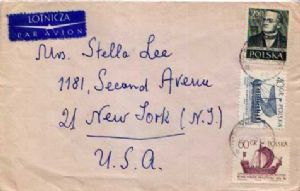 LOTNICZA
PAR AVION
POLSKA
Mrs. Stella Lee
1181, Second Avenu
21 New York (N.J)
U.S.A.
60 GR POLSKA